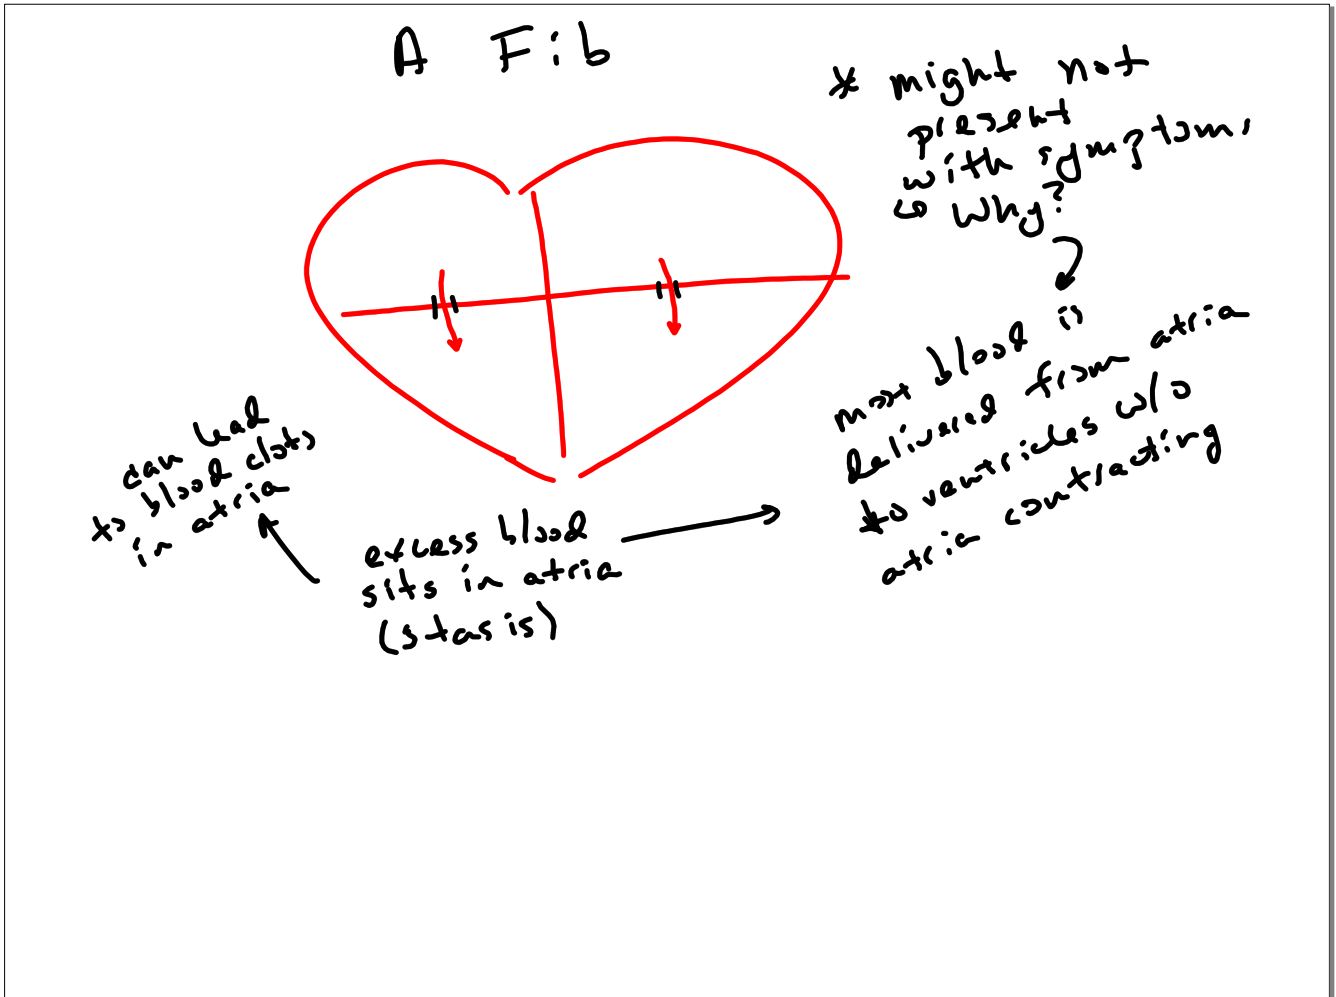 A Fib
* might not
present
with symptoms
↳ Why?
most blood is
delivered from atria
to ventricles w/o
atria contracting
can lead
to blood clots
in atria
excess blood
sits in atria
(stasis)